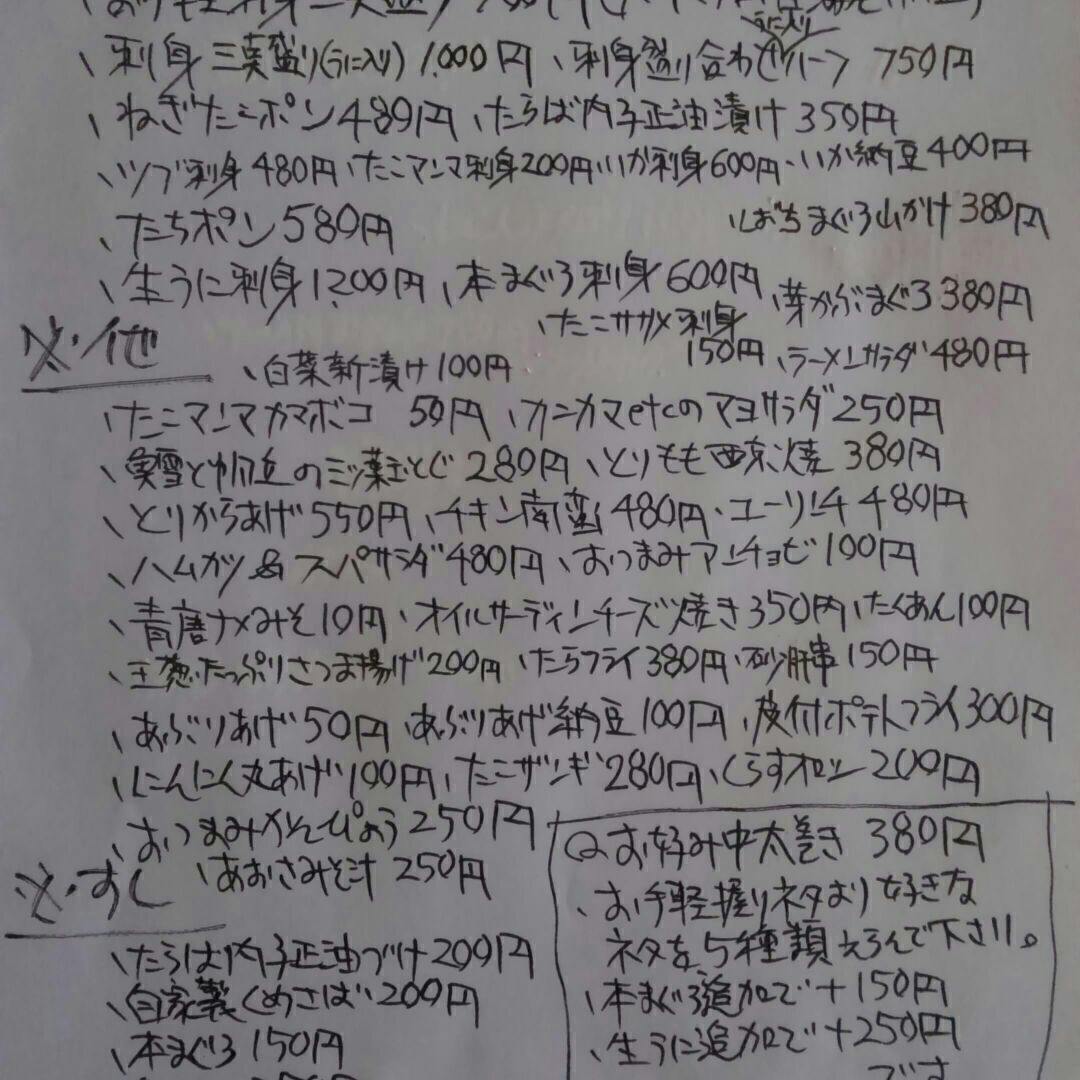 、刺身三葉盛り(うに入り) 1,000円 、刺身盛り合わせハーフ 750円
うに入り
、ねぎたこポン 480円 、たらば内子正油漬け 350円
、ツブ刺身 480円 、たこマンマ刺身 200円 、いか刺身 600円 、いか納豆 400円
、たちポン 580円 、ばちまぐろ山かけ 380円
、生うに刺身 1,200円 、本まぐろ刺身 600円 、芽かぶまぐろ 380円
※・他 、たこササメ刺身 150円 、ラーメンサラダ 480円
、白菜新漬け 100円
、たこマンマカマボコ 50円 、カニカマetcのマヨサラダ 250円
、雪と帆立の三ッ葉玉とじ 280円 、とりもも西京焼 380円
、とりからあげ 550円 、チキン南蛮 480円 、ユーリンチ 480円
、ハムカツ & スパサラダ 480円 、おつまみアンチョビ 100円
、青唐ナメみそ 10円 、オイルサーディンチーズ焼き 350円 、たくあん 100円
、玉葱たっぷりさつま揚げ 200円 、たらフライ 380円 、砂肝串 150円
、あぶりあげ 50円 、あぶりあげ納豆 100円 、皮付ポテトフライ 300円
、にんにく丸あげ 100円 、たこザンギ 280円 、くらすオロシ 200円
、おつまみかんぴょう 250円
、あおさみそ汁 250円
※・すし
、たらば内子正油づけ 200円
、自家製〆めさば 200円
、本まぐろ 150円
◎お好み中太巻き 380円
、お手軽握りネタより好きな
ネタを5種類えらんで下さい。
、本まぐろ追加で+150円
、生うに追加で+250円
です